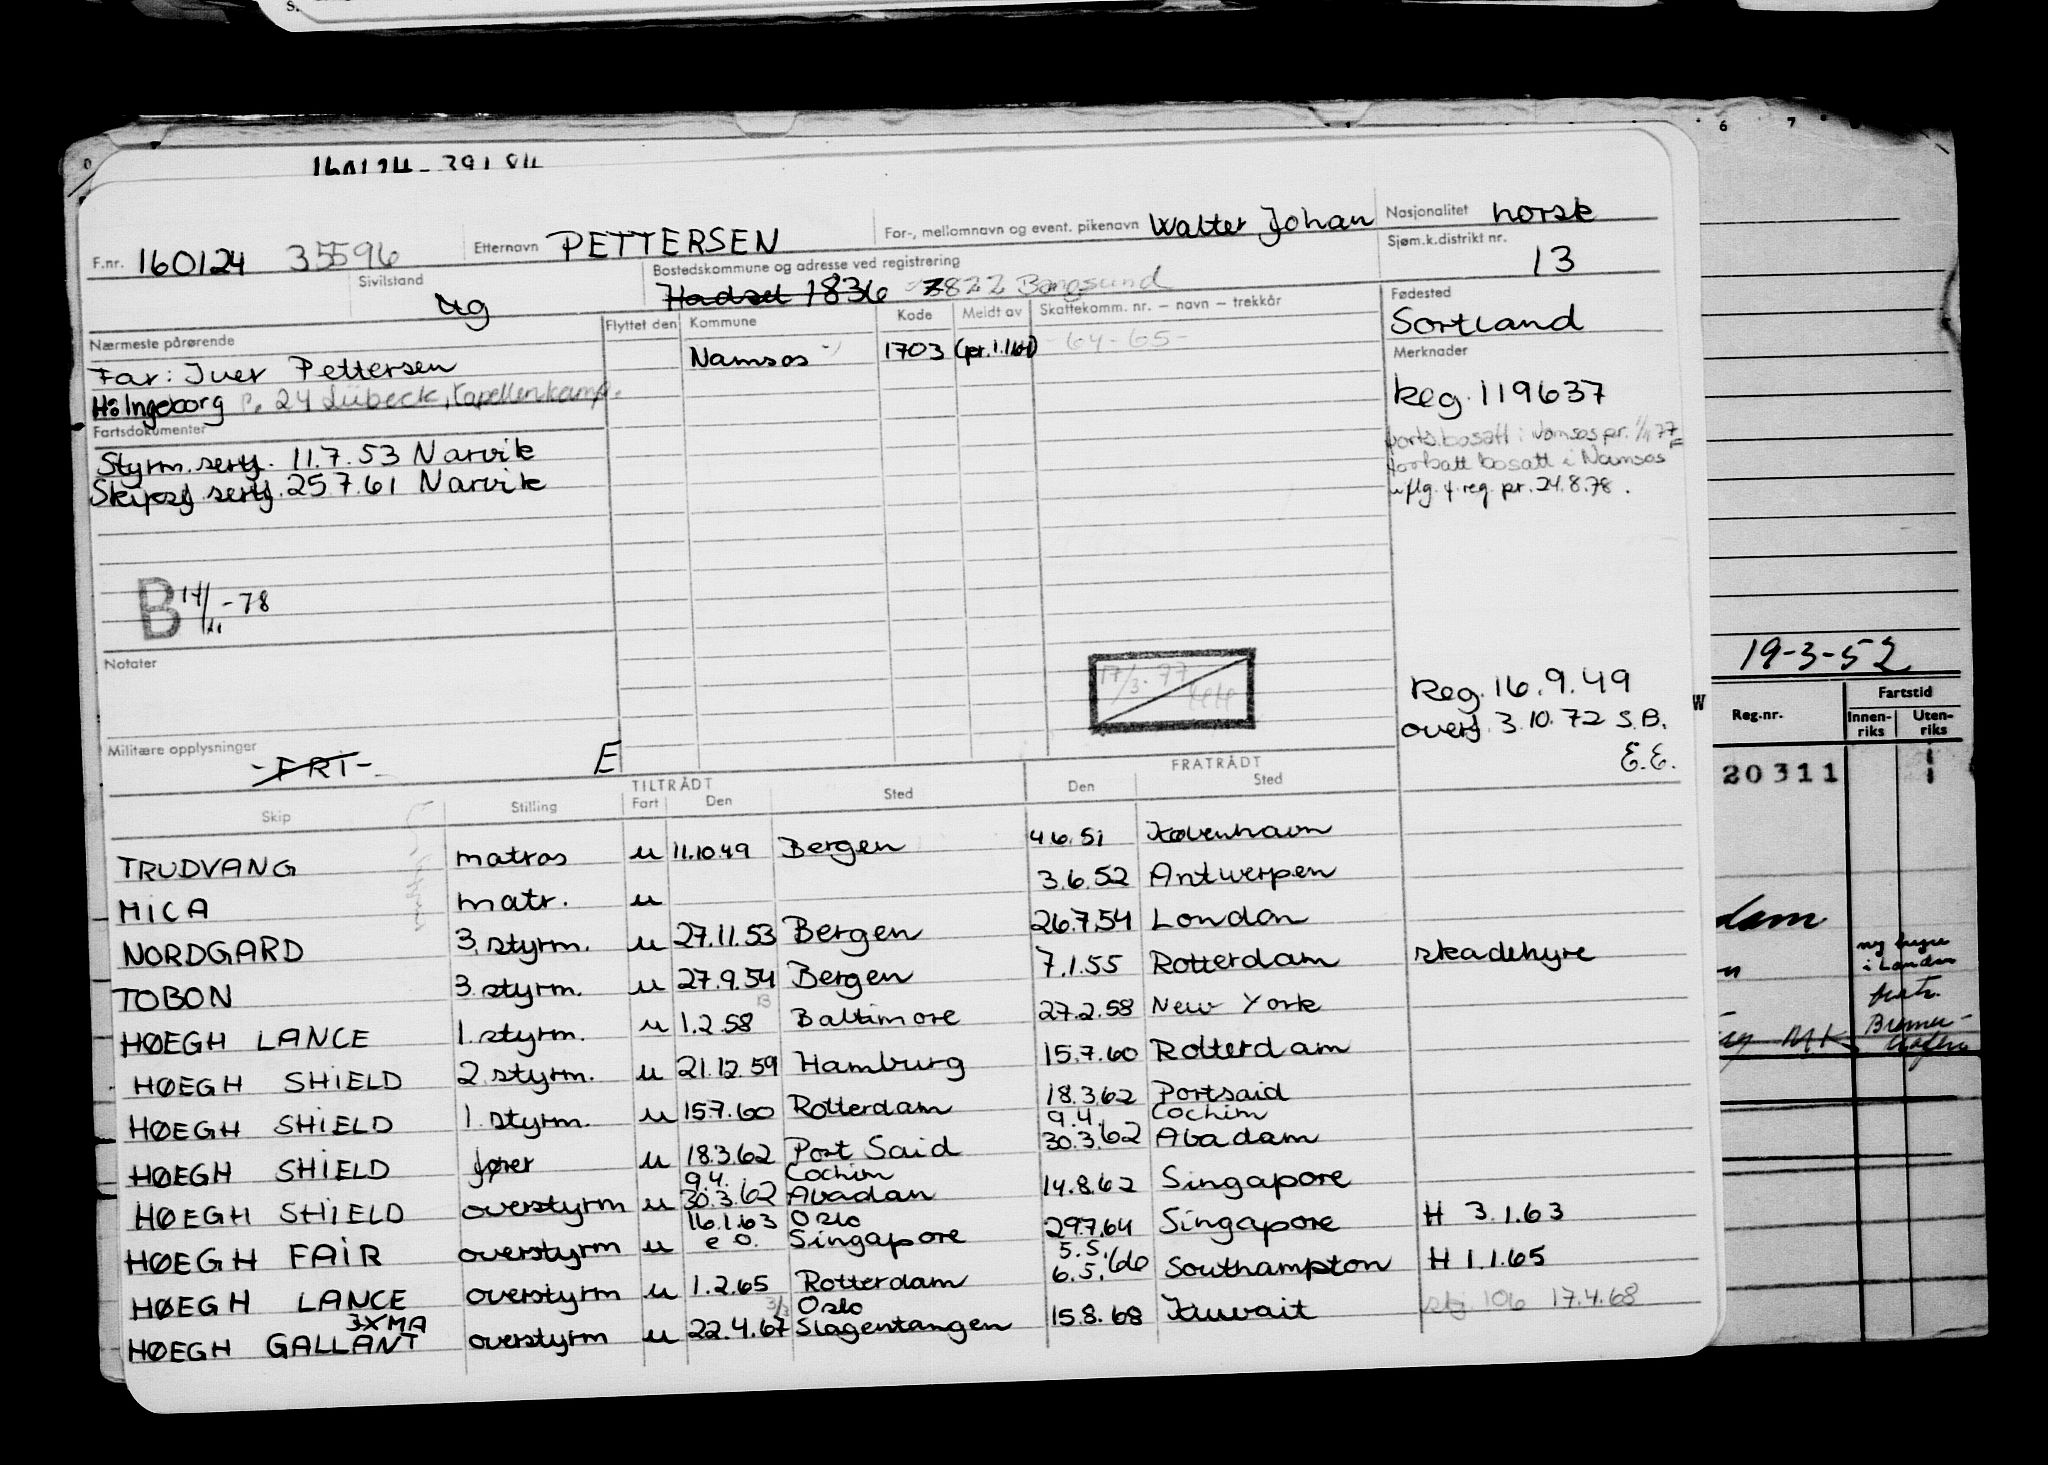 F.nr. 160124 35596 Etternavn PETTERSEN For-, mellomnavn og event. pikenavn Walter Johan Nasjonalitet norsk
Sivilstand ug Bostedskommune og adresse ved registrering Hadsel 1836 7822 Bangsund Sjøm.k.distrikt nr. 13
Nærmeste pårørende Flyttet den Kommune Kode Meldt av Skattekomm. nr. – navn – trekkår Fødested
Sortland
Far: Iver Pettersen Namsos 1703 - 64-65- Merknader
H: Ingeborg 24 Lübeck, Kapellenkamp. Reg. 119637
Fartsdokumenter
Styrm. sertf. 11.7.53 Narvik
Skipsf sertf. 25 7.61 Narvik
bosatt i Namsos pr. 77
fortsatt bosatt i Namsos
iflg. f. reg. pr. 24.8.78.
B 17/ -78
Notater
17/3.77
Reg. 16.9.49
overf. 3.10.72 S.B.
E.E.
Militære opplysninger -FRI- E
TILTRÅDT FRATRÅDT
Skip Stilling Fart Den Sted Den Sted
TRUDVANG matros u 11.10 49 Bergen 4 6.51 København
MICA matr. u 3.6.52 Antwerpen
NORDGARD 3. styrm. u 27.11.53 Bergen 26.7.54 London
TOBON 3. styrm. u 27.9.54 Bergen 7.1.55 Rotterdam skadehyre
HØEGH LANCE 1. styrm. u 1.2.58 Baltimore 27.2.58 New York
HØEGH SHIELD 2. styrm. u 21.12.59 Hamburg 15.7.60 Rotterdam
HØEGH SHIELD 1. styrm. u 15.7.60 Rotterdam 18.3.62 Portsaid
HØEGH SHIELD fører u 18.3.62 Port Said 9.4. Cochim 30.3.62 Abadam
HØEGH SHIELD overstyrm u 9.4. Cochim 30.3.62 Abadan 14.8.62 Singapore
HØEGH FAIR overstyrm u 16.1.63 Oslo e o. Singapore 29.7.64 Singapore H 3.1.63
HØEGH LANCE overstyrm u 1.2.65 Rotterdam 5.5. 6.5.66 Southampton H 1.1.65
3XMA
HØEGH GALLANT overstyrm u 3/3 Oslo 22.4.67 Slagentangen 15.8.68 Kuwait 106 17.4.68
6 7
19-3-52
Reg.nr. Fartstid
Innenriks Utenriks
20311
dam
ny hyre
i London
W